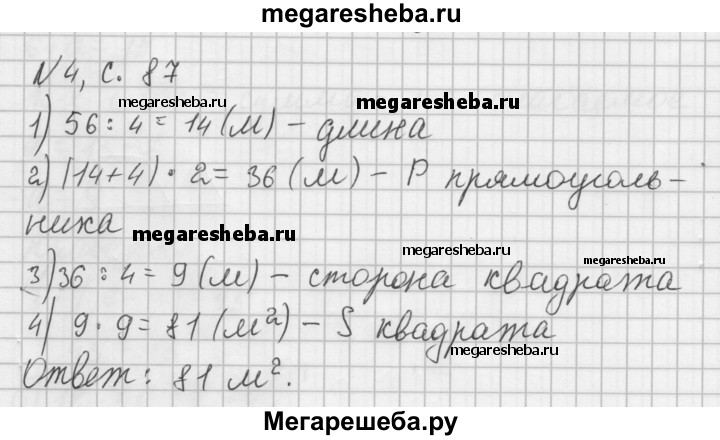 megaresheba.ru
N 4, с. 87
megaresheba.ru
megaresheba.ru
1) 56 : 4 = 14 (м) – длина
2) (14+4) · 2 = 36 (м) – P прямоуголь-
ника
megaresheba.ru
megaresheba.ru
megaresheba.ru
3) 36 : 4 = 9 (м) – сторона квадрата
4) 9 · 9 = 81 (м²) – S квадрата
megaresheba.ru
Ответ: 81 м².
Мегарешеба.ру